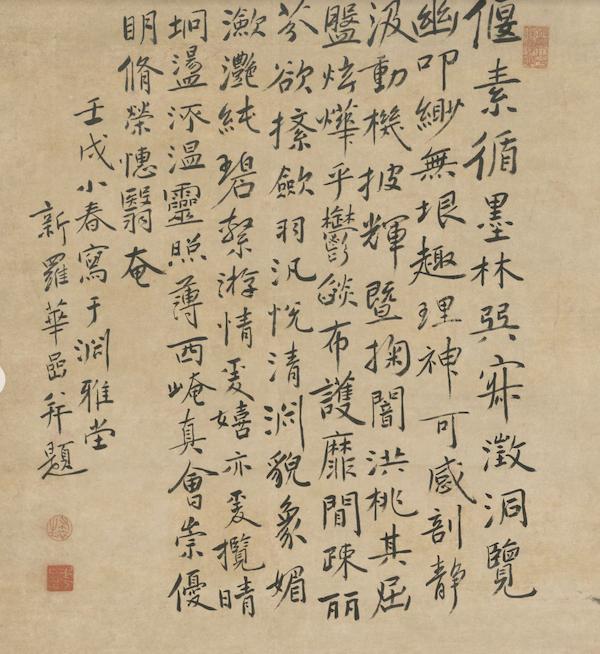 偃素循墨林巺寐澂洞覽
幽叩緲無垠趣理神可感剖靜
汲動機披輝暨掬闇洪桃其屈
盤炫燁乎鬱燄布護靡間疎丽
芬欲歛羽汎悅清淵貌象媚
潄灔純碧縏游情爰嬉亦爰攬晴
坰盪溫靈照薄西崦真會崇優
眀脩榮憓翳奄
壬戌小春寫于淵雅堂
新羅華喦并題